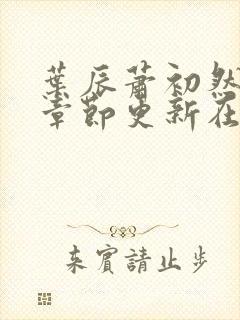 葉辰蕭初然
章節更新在
来賓請止步